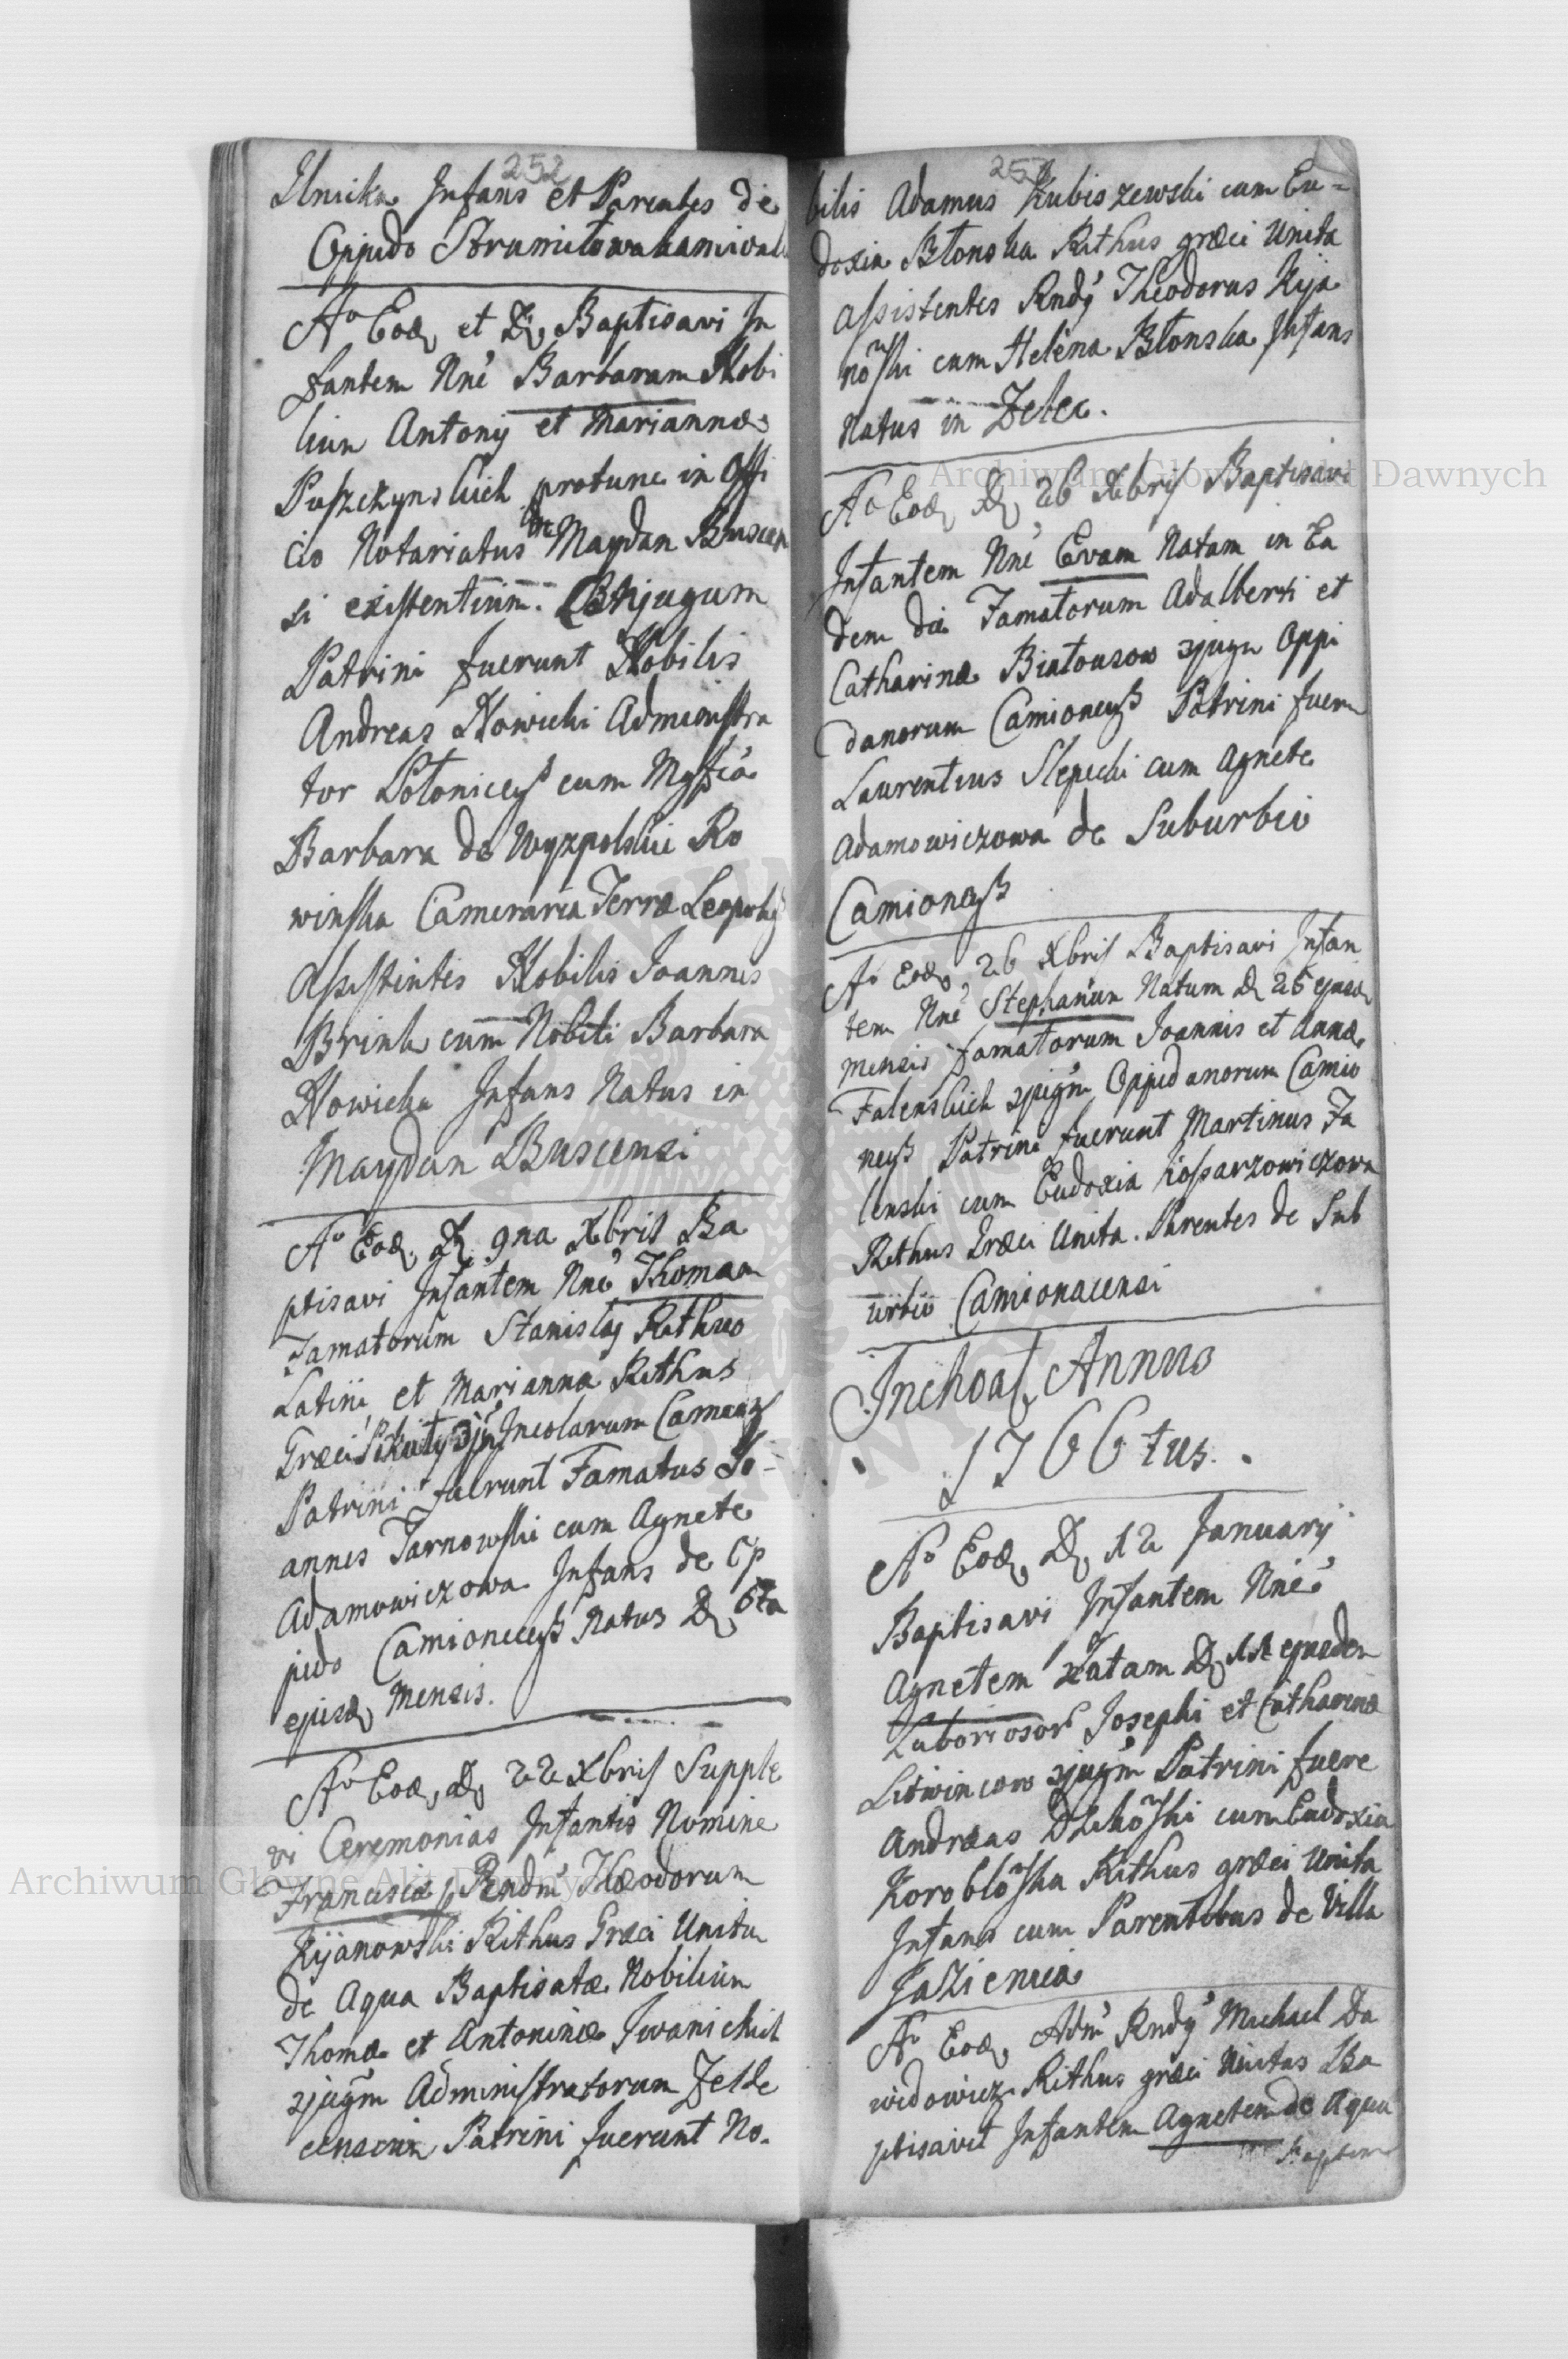 252
Ilnicka Infans et Parentes de
Oppido Strumiłowakamival
Aº Eod, et D, Baptisavi In
fantem Nnē Barbaram Nobi
lium Antonij et Mariannæ
Puszczynskich protunc in Offi
cio Notariatus de Maydan Buscen
si existentium. Conjugum
Patrini fuerunt Nobilis
Andreas Nowicki Administra
tor cum Mgfca
Barbara de Wyzpolskie Ro
winska Cameraria Terræ Leopolß
Assistentes Nobilis Joannes
Brink cum Nobili Barbara
Nowicka Infans Natus in
Maydan Buscensi
Aº Eod, D, 9na Xbris Ba
ptisavi Infantem Nnē Thomam
Famatorum Stanislaj Rithus
Latini et Marianna Rithus
Græci Incolarum
Patrini fuerunt Famatus Jo-
annes Tarnowski cum Agnete
Adamowiczowa Infans de Op
pido Camionceß Natus D, 6ta
ejusd, Mensis.
Aº Eod, D, 22 Xbris Supple
vi Ceremonias Infantis Nomine
Francisca p Rndm Theodorum
Kijanowski Rithus Græci Unitu
de Aqua Baptisatæ Nobilium
Thomæ et Antoninæ Iwanickich
sjugm Administratorum Zelde
censium Patrini fuerunt No-
bilis Adamus Kubiszewski cum Eu=
doxia Błonska Rithus græci Unita
Assistentes Rndy Theodorus Kija
nõski cum Helena Błonska Infans
Natus in Zelec.
Aº Eod, D, 26 Xbris Baptisavi
Infantem Nnē Evam Natam in Ea
dem die Famatorum Adalberti et
Catharinæ Białousow sjugu Oppi
danorum Camionceß Patrini fuern
Laurentius Slepicki cum Agnete
Adamowiczowa de Suburbio
Camionceß
Aº Eod, 26 Xbris Baptisavi Infan
tem Nnē Stephanum Natum D 25 ejusd,
mensis famatorum Joannis et Annæ
Falenskich sjugm Oppidanorum Camio
neß Patrini fuerunt Martinus Fa
lenski cum Eudoxia
Rithus Græci Unita. Parentes de Sub
urbio Camionacensi
Inchoat, Annus
1766tus.
Aº Eod, D, 12 Januarij
Baptisavi Infantem Nnē
Agnetem Natam D, 11 ejusdem
Laboriosor Josephi et Catharinæ
Litwincow sjugm Patrini fuere
Andreas cum Eudoxia
Koroblõska Rithus græci Unita
Infans cum Parentibus de Villa
Jazienica
Aº Eod, Adm Rndy Michael Da
widowicz Rithus græci Unitus Ba
ptisavit Infantem Agnetem de Aqua